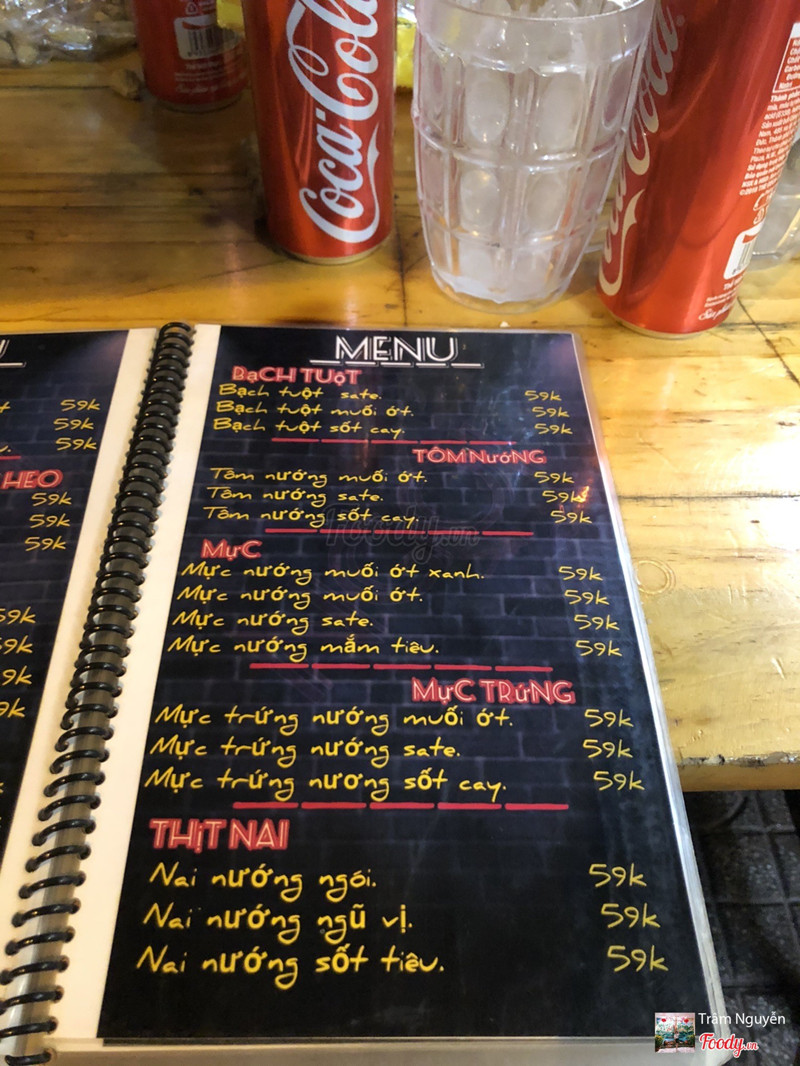 Coca-Cola
MENU
BẠCH TUỘT
Bạch tuột sate. 59k
Bạch tuột muối ớt. 59k
Bạch tuột sốt cay. 59k
TÔM NƯỚNG
Tôm nướng muối ớt. 59k
Tôm nướng sate. 59k
Tôm nướng sốt cay. 59k
MỰC
Mực nướng muối ớt xanh. 59k
Mực nướng muối ớt. 59k
Mực nướng sate. 59k
Mực nướng mắm tiêu. 59k
MỰC TRỨNG
Mực trứng nướng muối ớt. 59k
Mực trứng nướng sate. 59k
Mực trứng nương sốt cay. 59k
THỊT NAI
Nai nướng ngói. 59k
Nai nướng ngũ vị. 59k
Nai nướng sốt tiêu. 59k
59k
59k
59k
HEO
59k
59k
59k
59k
9k
9k
9k
Foody.vn
Trâm Nguyễn
Foody.vn